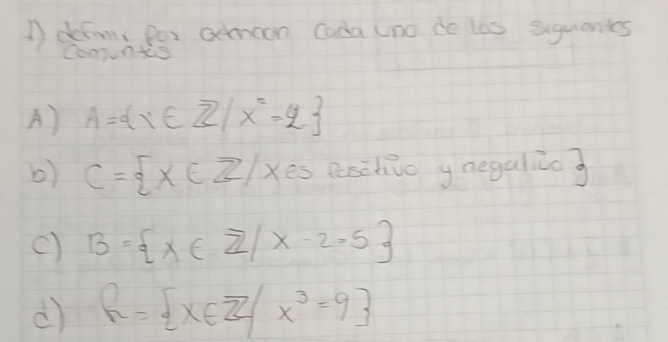 1) definir por extencion cada uno de los siguientes
Conjuntos
A) A={x∈ℤ/x²=2}
b) C={x∈ℤ/x es positivo y negativo}
c) B={x∈ℤ/x-2=5}
d) R={x∈ℤ/x³=9}